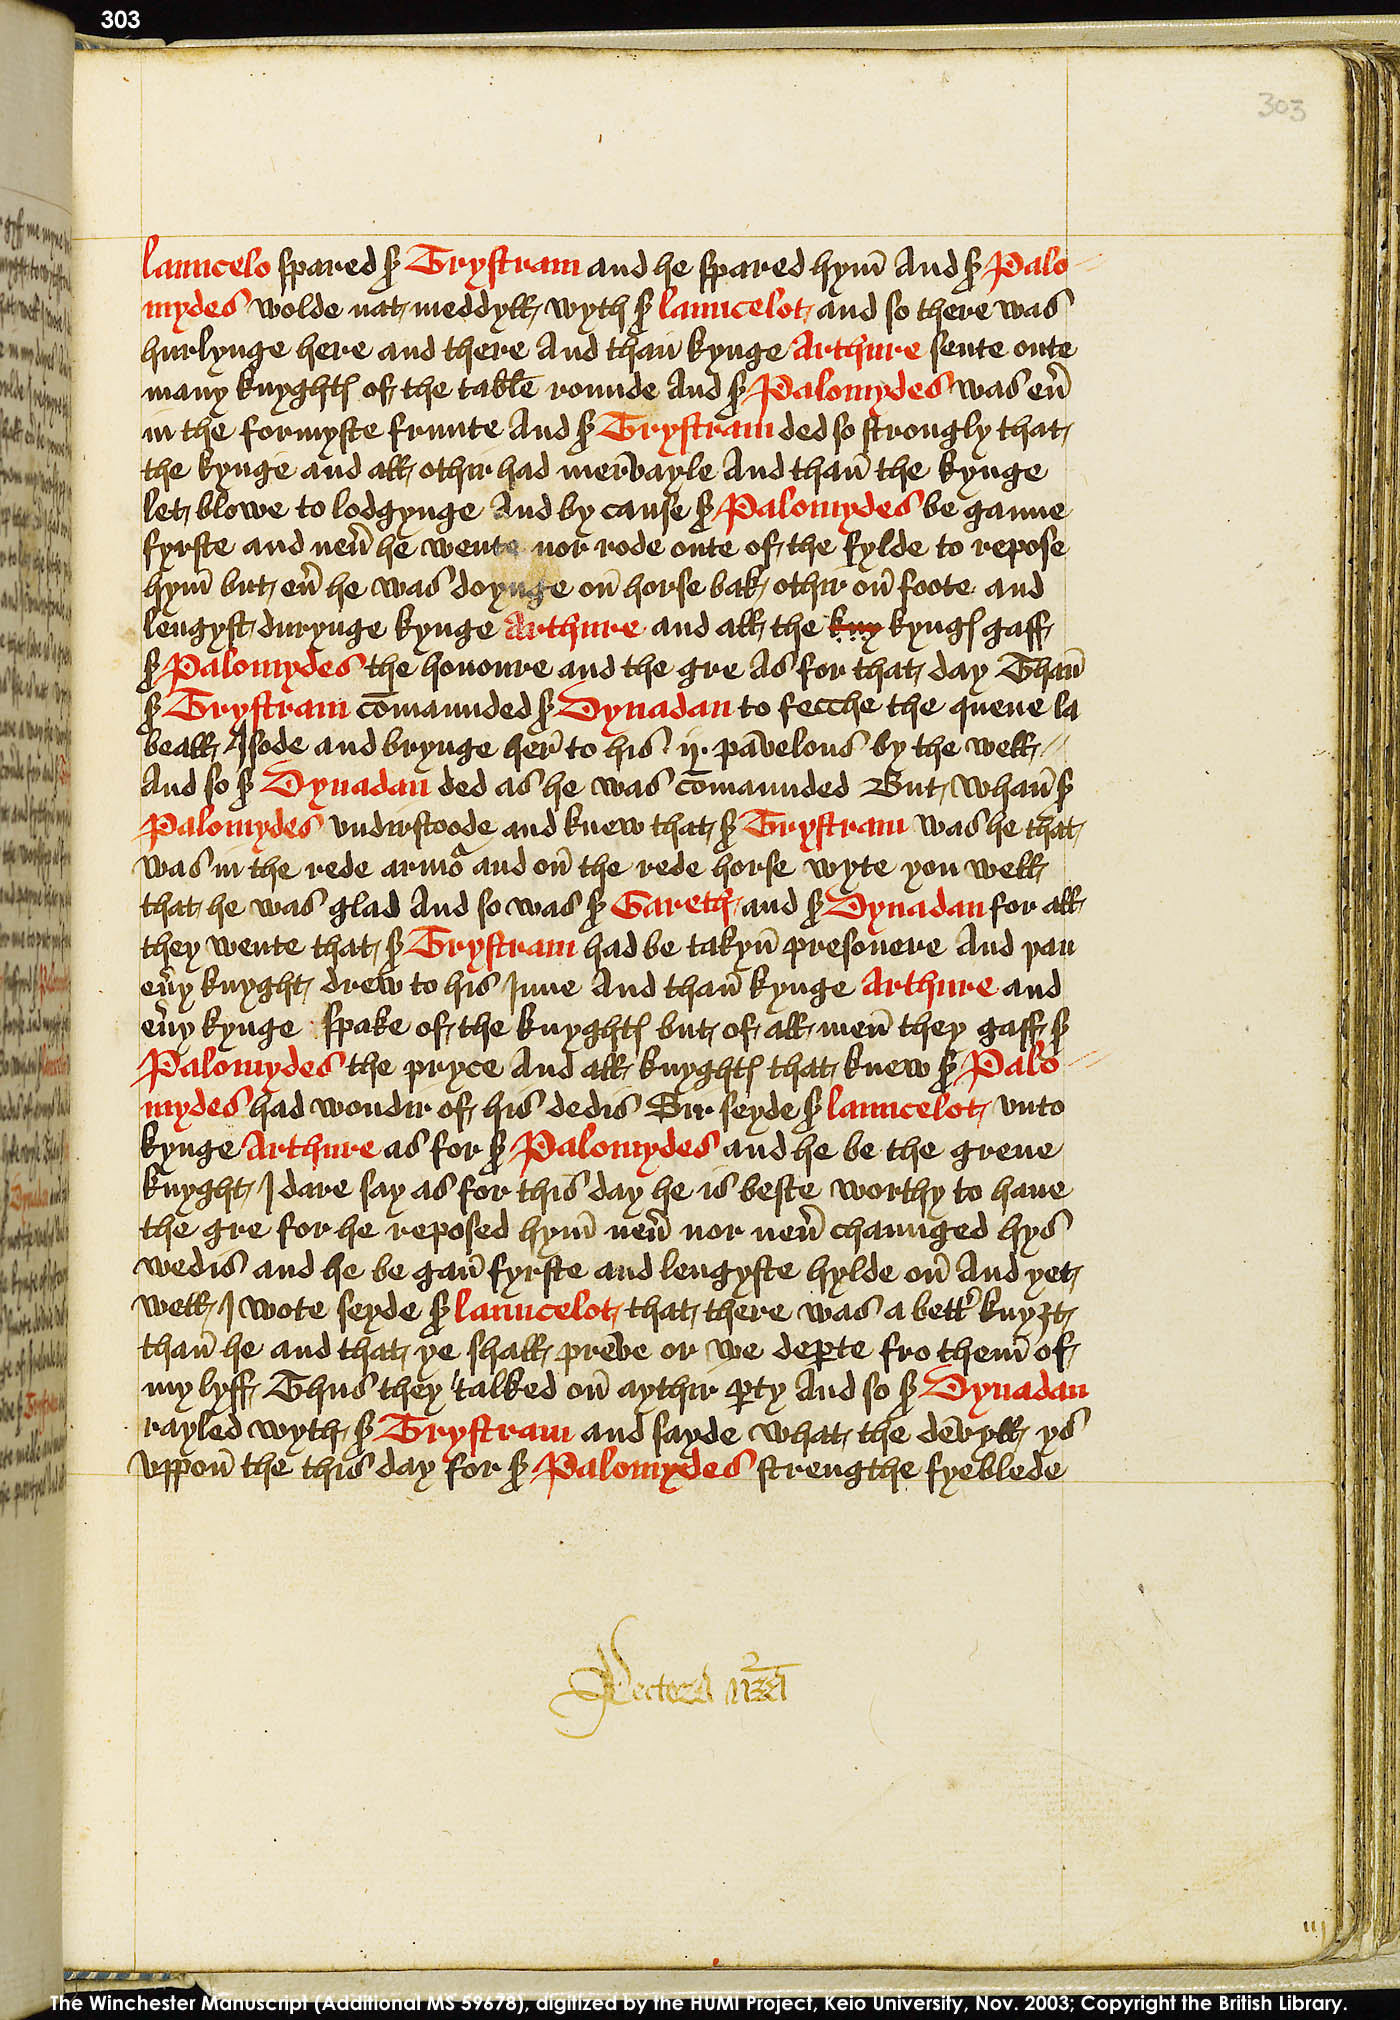 303
303
launcelo spared sr Trystram and he spared hym And sr Palo
mydes wolde nat meddyll wyth sr launcelot and so there was
hurlynge here and there And than kynge Arthure sente oute
many knyghtes of the table rounde And sr Palomydes was eu͛
in the formyste frunte And sr Trystram ded so strongly that
the kynge and all othir had mervayle And than the kynge
let blowe to lodgynge And by cause sr Palomydes be ganne
fyrste and neu͛ he wente nor rode oute of the fylde to repose
hym but eu͛ he was doynge on horse bak othir on foote and
lengyst durynge kynge Arthure and all the kny kynges gaff
sr Palomydes the honoure and the gre As for that day Than
sr Trystram com̄aunded sr Dynadan to fecche the quene la
beall Isode and brynge her to his .ij. pavelons by the well
And so sr Dynadan ded as he was com̄aunded But whan sr
Palomydes undirstoode and knew that sr Trystram was he that
was in the rede armor and on the rede horse wyte you well
that he was glad And so was sr Gareth and sr Dynadan for all
they wente that sr Trystram had be takyn presonere And yan
eu͛y knyght drew to his Inne And than kynge Arthure and
eu͛y kynge spake of the knyghtes but of all men they gaff sr
Palomydes the pryce And all knyghtes that knew sr Palo
mydes had wondir of his dedis Sir seyde sr launcelot unto
kynge Arthure as for sr Palomydes and he be the grene
knyght I dare say as for this day he is beste worthy to haue
the gre for he reposed hym neu͛ nor neu͛ chaunged hys
wedis and he be gan fyrste and lengyste hylde on And yet
well I wote seyde sr launcelot that there was a bett͛ knyȝt
than he and that ye shall preve or we deꝑte fro them of
my lyff Thus they talked on aythir ꝑty And so sr Dynadan
rayled wyth sr Trystram and sayde what the devyll ys
uppon the this day for sr Palomydes strengthe fyeblede
iiij
The Winchester Manuscript (Additional MS 59678), digitized by the HUMI Project, Keio University, Nov. 2003; Copyright the British Library.